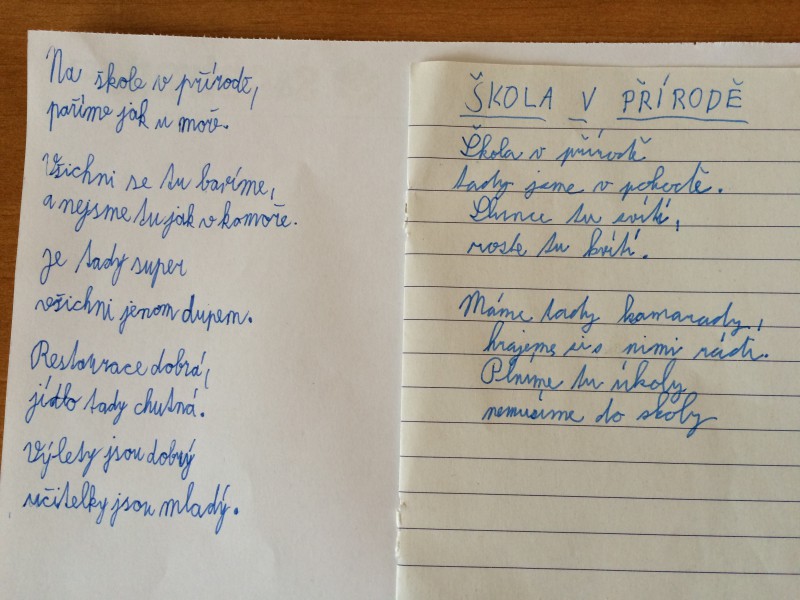 Na škole v přírodě,
paříme jak u moře.
Všichni se tu bavíme,
a nejsme tu jak v komoře.
Je tady super
všichni jenom dupem.
Restaurace dobrá,
jídlo tady chutná.
Výlety jsou dobrý
učitelky jsou mladý.
ŠKOLA V PŘÍRODĚ
Škola v přírodě
tady jsme v pohodě.
Slunce tu svítí,
roste tu kvítí.
Máme tady kamarady,
hrajeme si s nimi rádi.
Plníme tu úkoly
nemusíme do školy